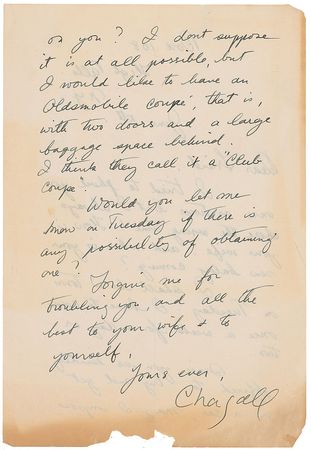 on you? I dont suppose
it is at all possible, but
I would like to have an
Oldsmobile coupé, that is,
with two doors and a large
baggage space behind.
I think they call it a "Club
coupe".
Would you let me
know on Tuesday if there is
any possibility of obtaining
one?
Forgive me for
troubling you, and all the
best to your wife & to
yourself,
Yours ever,
Chagall